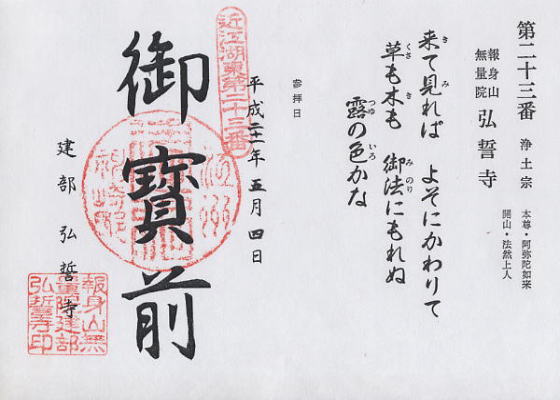 第二十三番 浄土宗
本尊・阿弥陀如来
開山・法然上人
報身山
無量院 弘誓寺
来て見れば よそにかわりて
き み
草も木も 御法にもれぬ
くさ き みのり
露の色かな
つゆ いろ
参拝日
平成二一年 五月 四日
近江湖東第二十三番
御寳前
建部 弘誓寺
報身山無
弘誓寺印